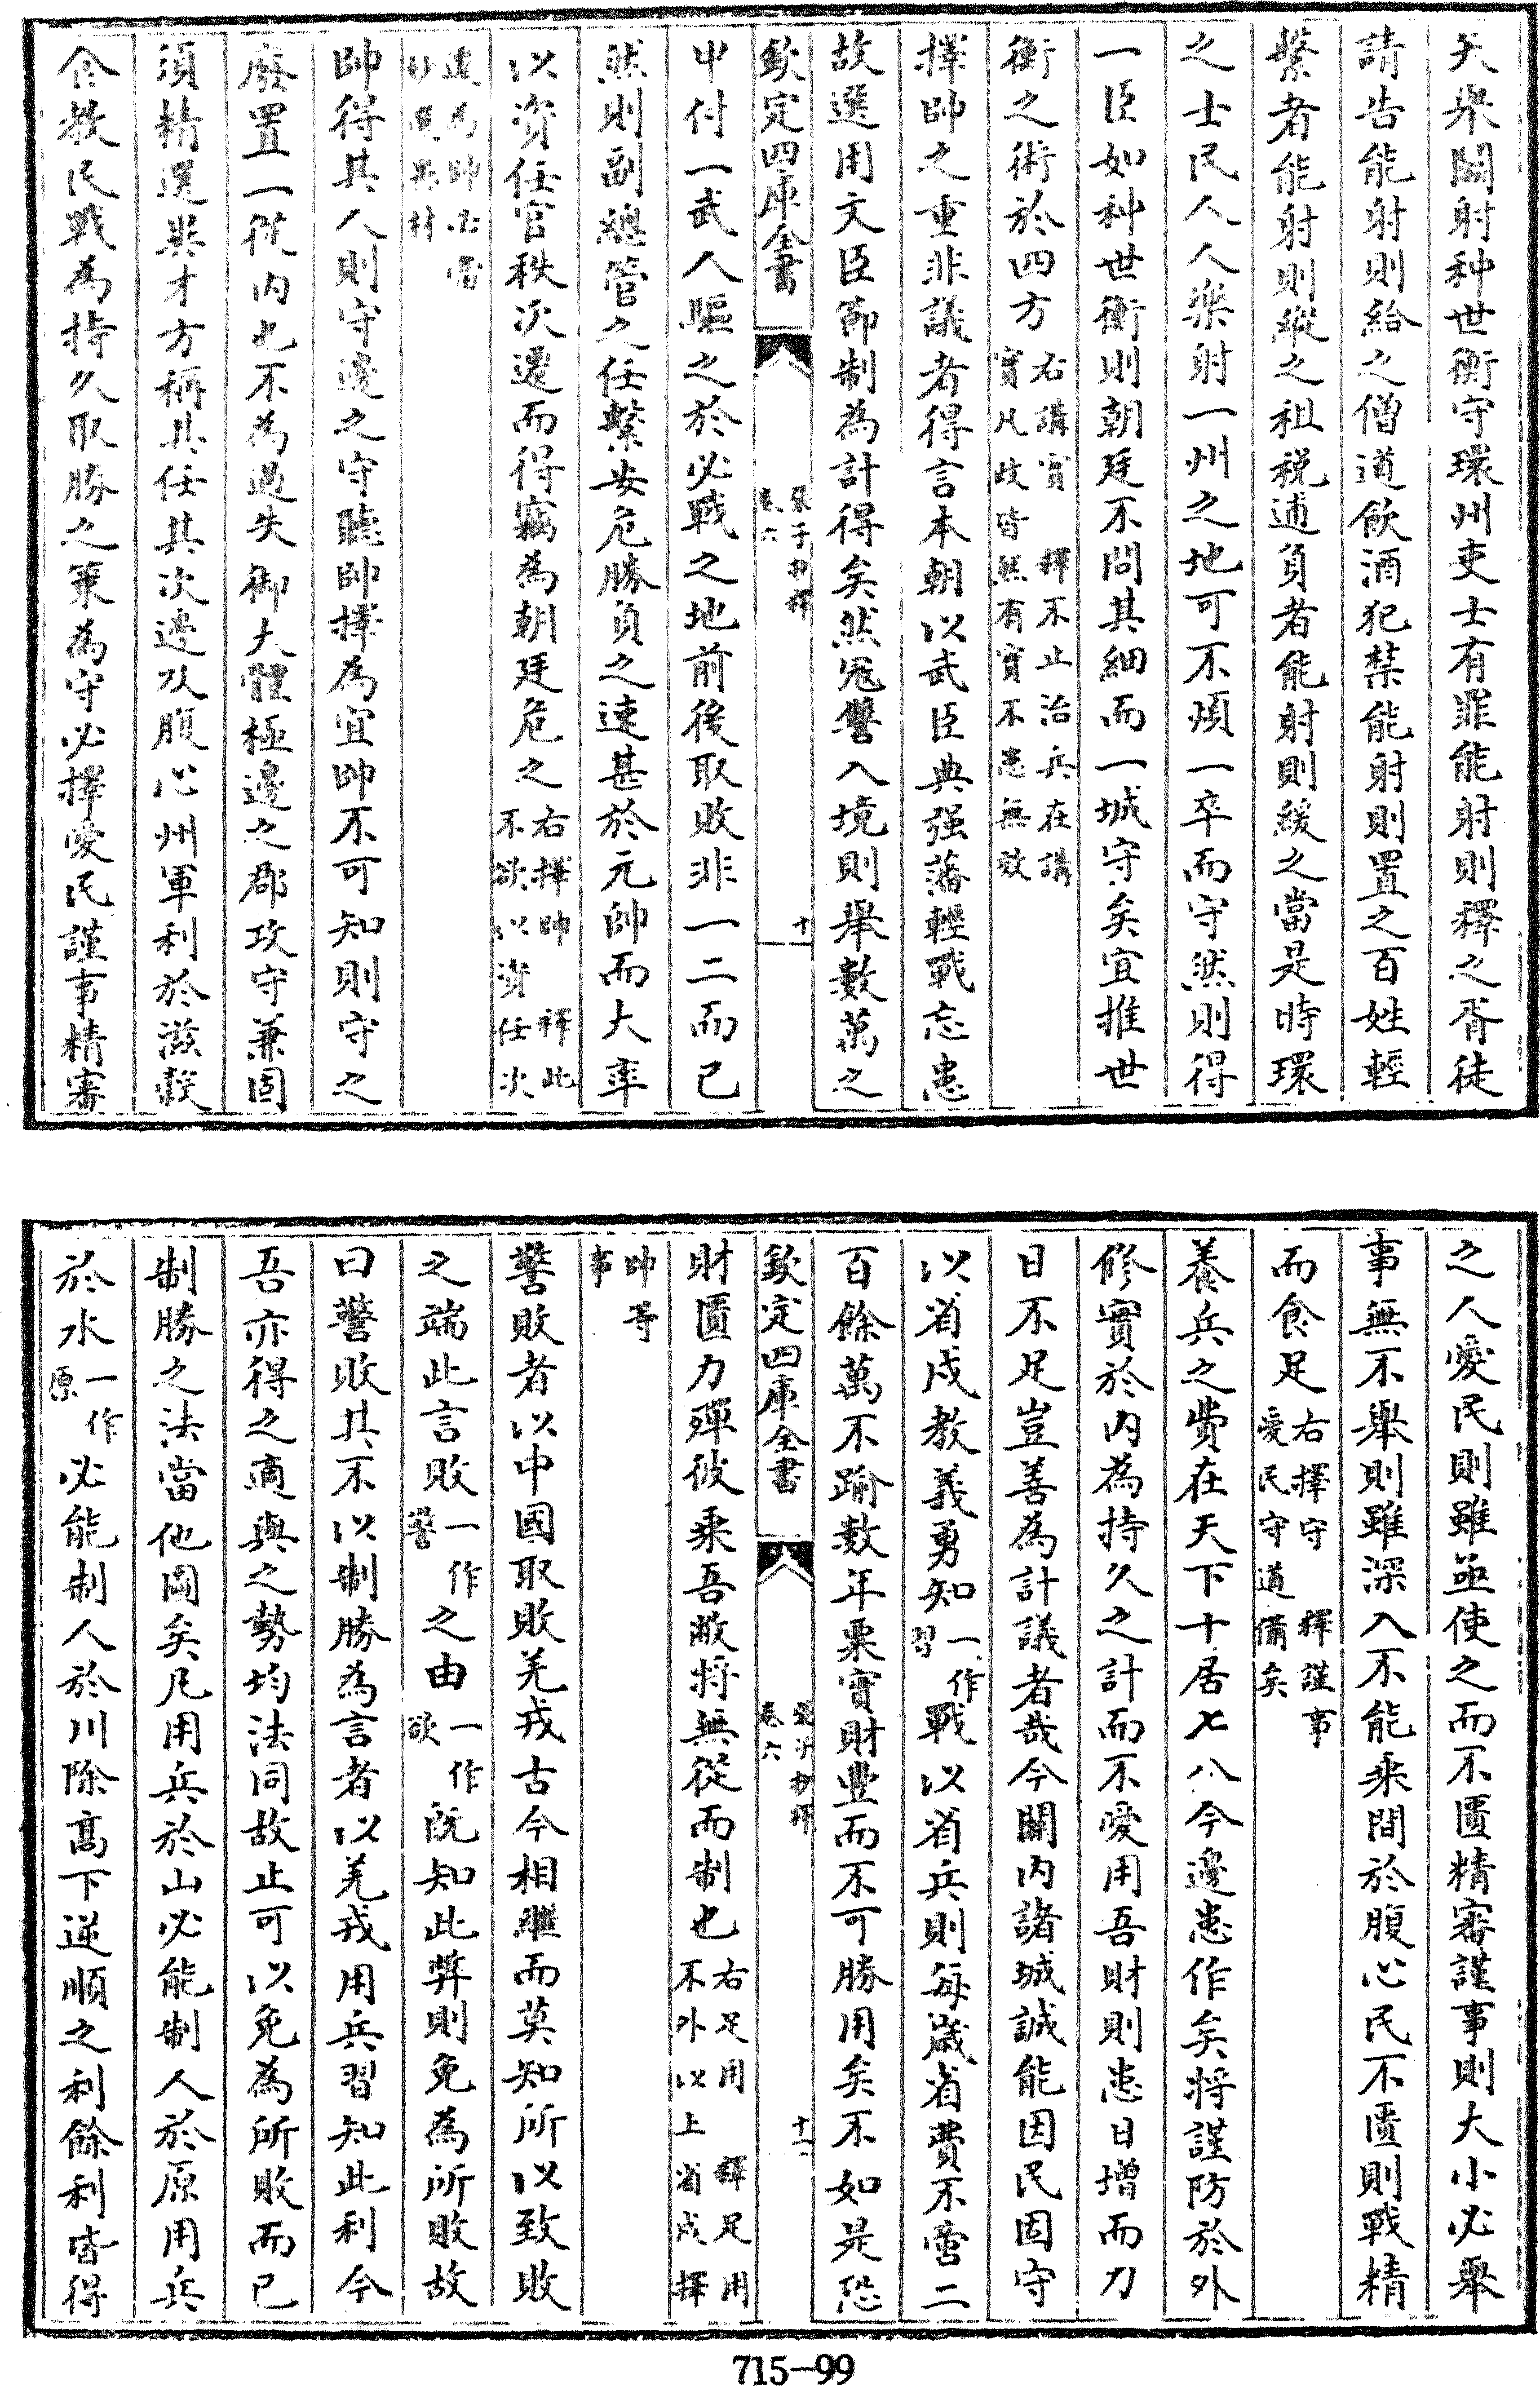 矢舉闗射种世衡守環州吏士有罪能射則釋之胥徒
請告能射則給之僧道飲酒犯禁能射則置之百姓輕
繫者能射則縱之租税逋負者能射則緩之當是時環
之士民人人樂射一州之地可不煩一卒而守然則得
一臣如种世衡則朝廷不問其細而一城守矣宜推世
衡之術於四方右講實 釋不止治兵在講
實凡政皆然有實不患無效
擇帥之重非議者得言本朝以武臣典强藩輕戰忘患
故選用文臣節制為計得矣然冦讐入境則舉數萬之
欽定四庫全書 張子抄釋 卷六 十
甲付一武人驅之於必戰之地前後取敗非一二而已
然則副總管之任繫安危勝負之速甚於元帥而大率
以資任官秩次遷而得竊為朝廷危之右擇帥 釋此
不欲以資任次
遷為帥必當
抄選異材
帥得其人則守邊之守聽帥擇為宜帥不可知則守之
廢置一從内也不為過失御大體極邊之郡攻守兼固
須精選異才方稱其任其次邊及腹心州軍利於滋穀
食教民戰為持久取勝之策為守必擇愛民謹事精審
之人愛民則雖亟使之而不匱精審謹事則大小必舉
事無不舉則雖深入不能乘間於腹心民不匱則戰精
而食足右擇守 釋謹事
愛民守道備矣
養兵之費在天下十居七八今邊患作矣將謹防於外
修實於内為持久之計而不愛用吾財則患日增而力
日不足豈善為計議者哉今闗内諸城誠能因民固守
以省戍教義勇知一作
習戰以省兵則每歲省費不啻二
百餘萬不踰数年粟實財豐而不可勝用矣不如是恐
欽定四庫全書 張子抄釋 卷六 十一
財匱力殫彼乘吾敝將無從而制也右足用 釋足用
不外以上省戍擇
帥等
事
警敗者以中國取敗羌戎古今相繼而莫知所以致敗
之端此言敗一作
警之由一作
欲既知此弊則免為所敗故
曰警敗其不以制勝為言者以羌戎用兵習知此利今
吾亦得之適與之勢均法同故止可以免為所敗而已
制勝之法當他圖矣凡用兵於山必能制人於原用兵
於水一作
原必能制人於川除高下逆順之利餘利皆得
715-99